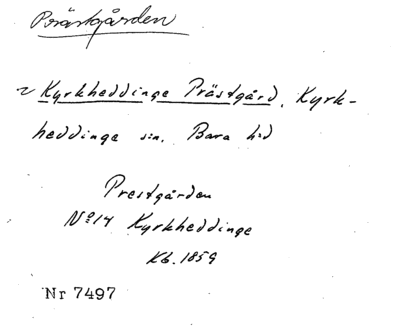 Prästgården
~ Kyrkheddinge Prästgård, Kyrk-
heddinge sn. Bara hd
Prestgården
No 14 Kyrkheddinge
Kb. 1859
Nr 7497